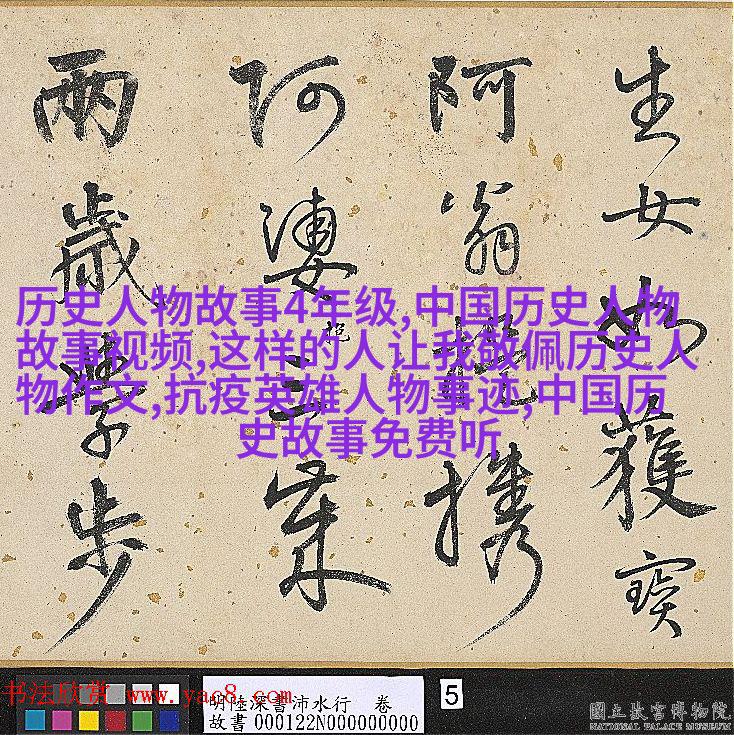 生女如獲寶
阿翁携
阿婆抱
兩歲學步
历史人物故事4年级,中国历史人物
故事视频,这样的人让我敬佩历史人
物作文,抗疫英雄人物事迹,中国历
史故事免费听
书法欣赏 www.yac8.com
明陸深書沛水行 卷
故書 000122N000000000
5
國立故宮博物院
NATIONAL PALACE MUSEUM